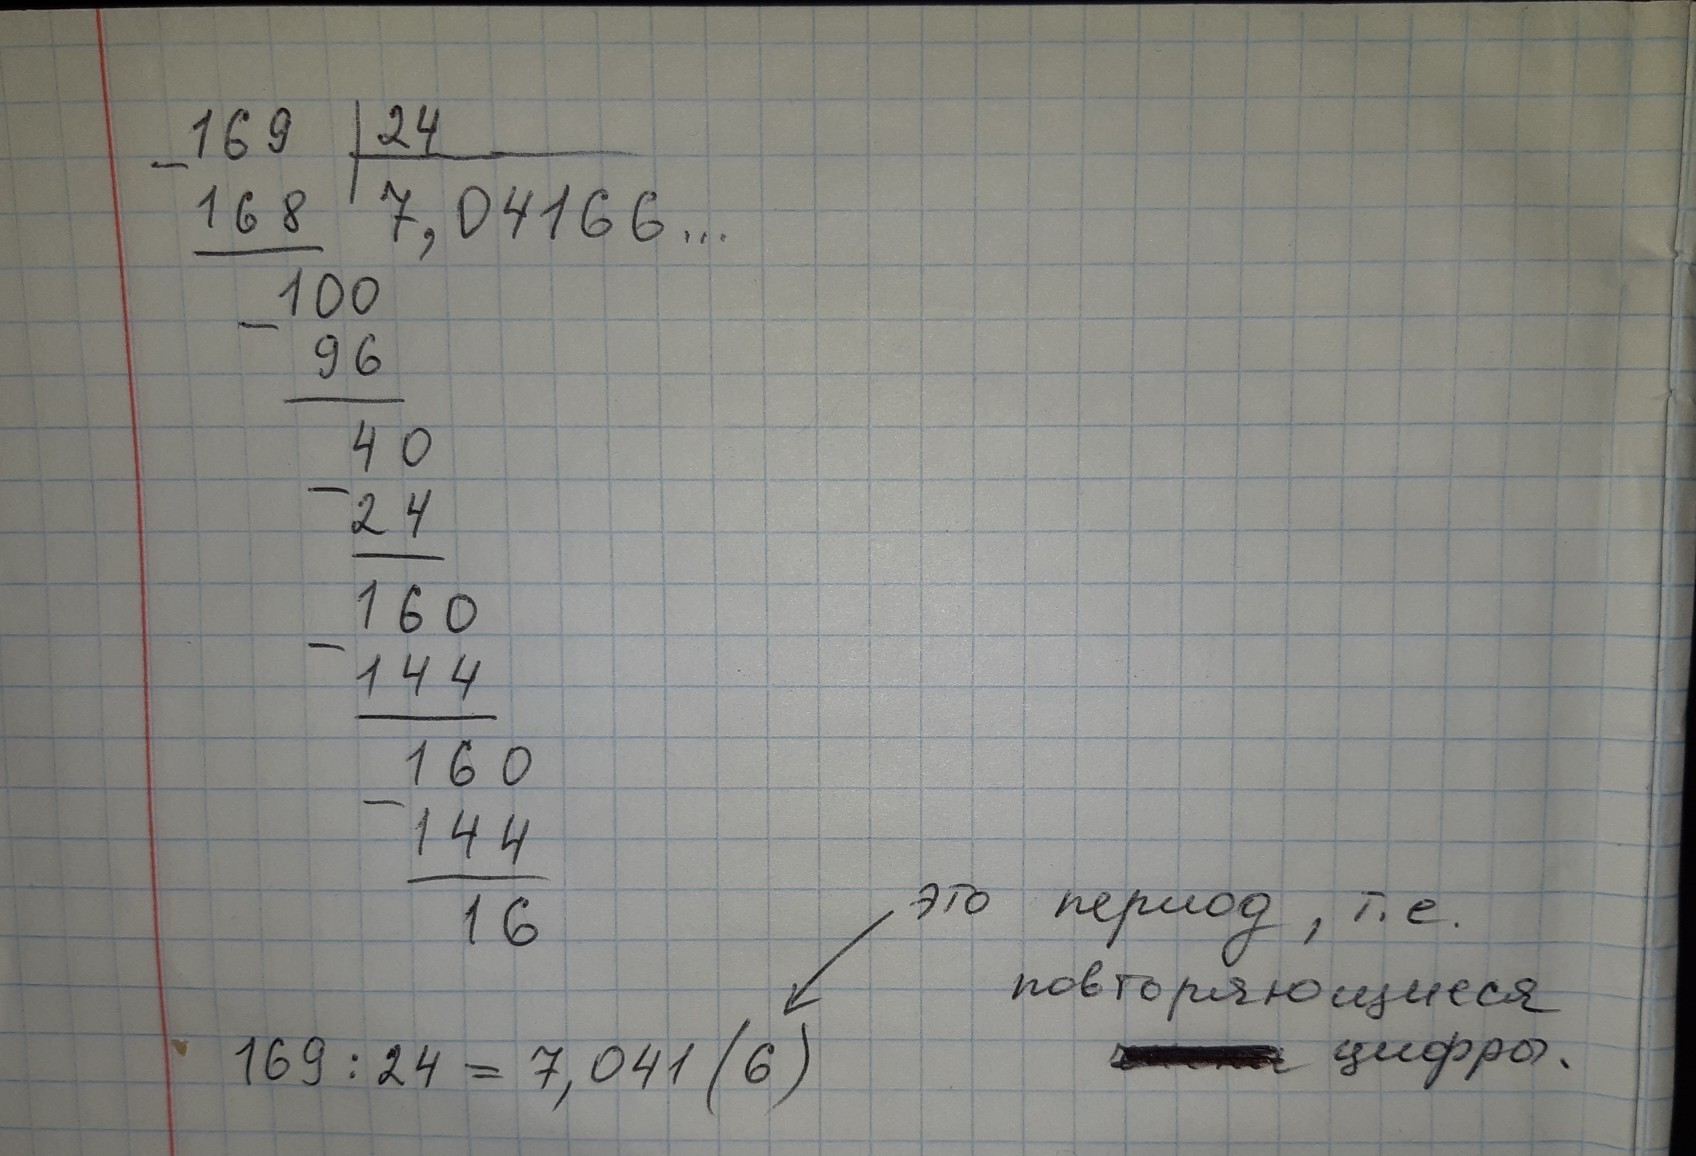 169 24
168 7,04166...
100
96
40
24
160
144
160
144
16
это период, т.е.
повторяющиеся
цифры.
169:24=7,041(6)